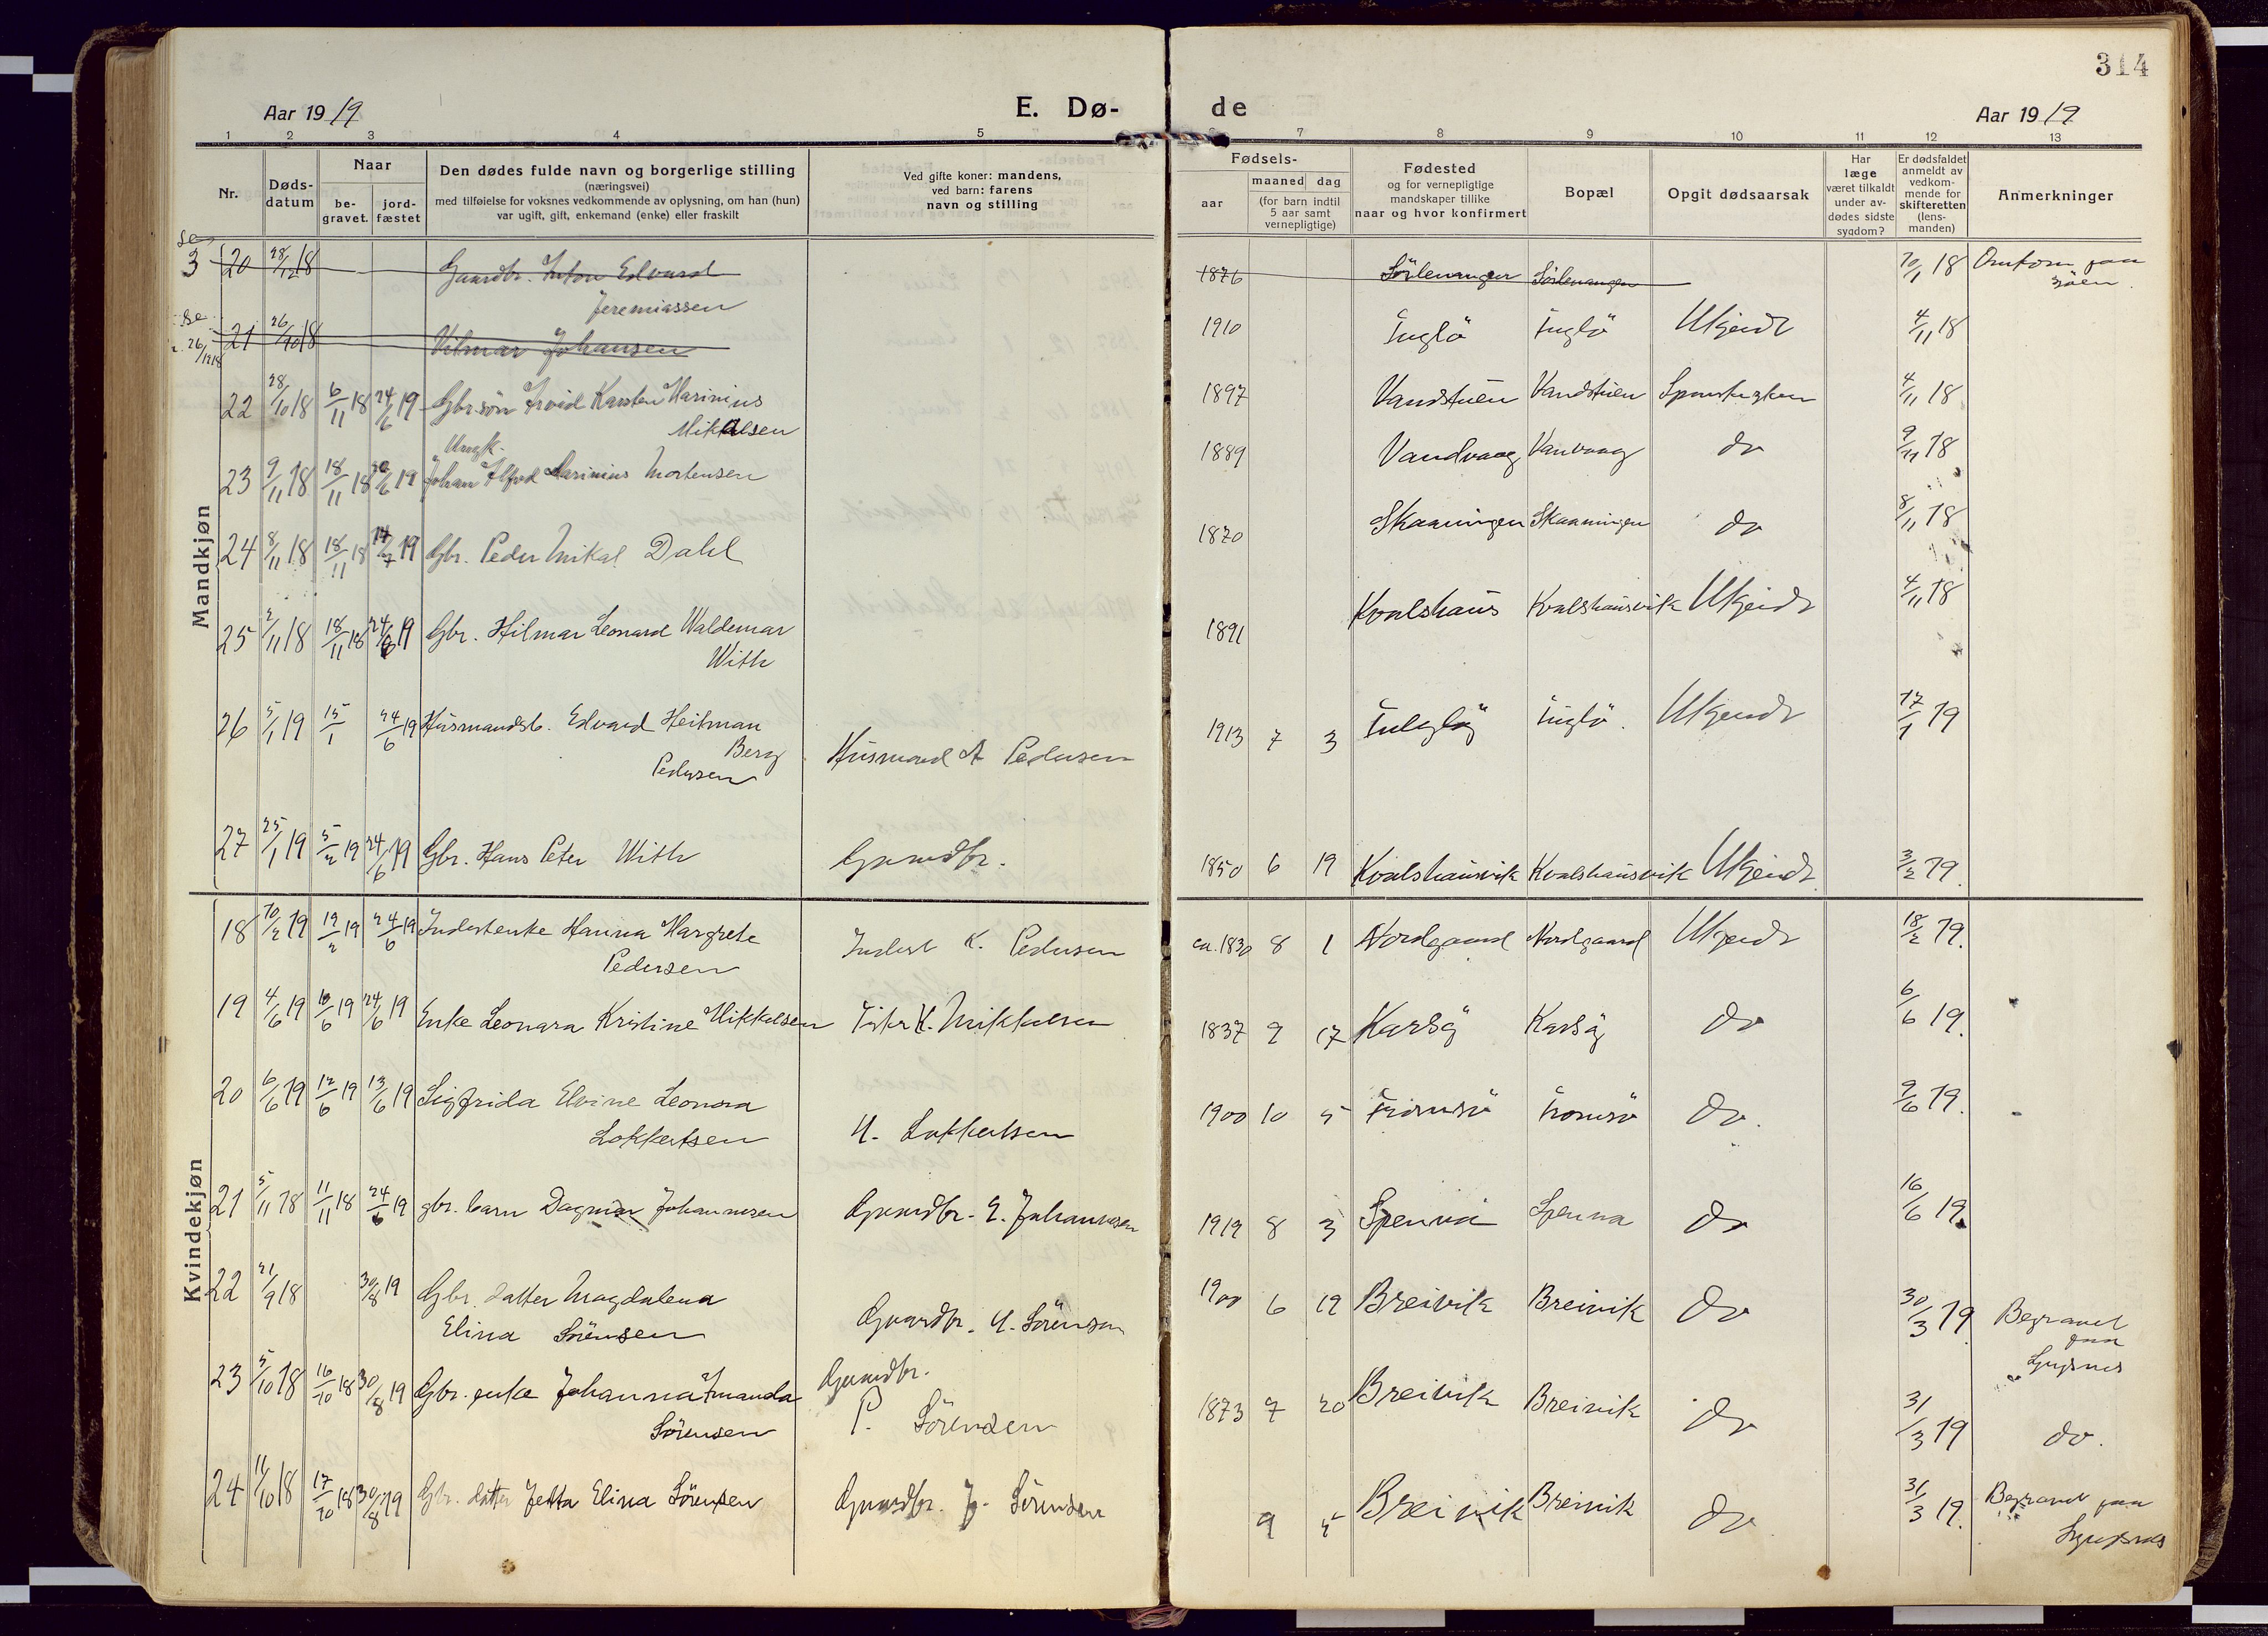 314
Aar 1919
E. Dø-
de
Aar 1919
1 2 3 4 5 6 7 8 9 10 11 12 13
Nr.
Døds-
datum
Naar
be-
gravet.
jord-
fæstet
Den dødes fulde navn og borgerlige stilling
(næringsvei)
med tilføielse for voksnes vedkommende av oplysning, om han (hun)
var ugift, gift, enkemand (enke) eller fraskilt
Ved gifte koner: mandens,
ved barn: farens
navn og stilling
Fødsels-
aar
maaned dag
(for barn indtil
5 aar samt
vernepligtige)
Fødested
og for vernepligtige
mandskaper tillike
naar og hvor konfirmert
Bopæl
Opgit dødsaarsak
Har
læge
været tilkaldt
under av-
dødes sidste
sygdom?
Er dødsfaldet
anmeldt av
vedkom-
mende for
skifteretten
(lens-
manden)
Anmerkninger
Mandkjøn
se
3 20 28/12 18 Gaardbr. Anton Edvard 1876 Sörlenangen Sörlenangen 18 Omkom paa
Jeremiassen sjöen.
se
21 26/10 18 Vilmar Johansen 1910 Ukjendt 4/11 18
26/10 18
22 28/10 18 6/11 18 24/6 19 Gbr. sön Arvid Karsten Marinius 1897 Vandstuen Vandstuen 4/11 18
Mikkelsen
Ungk.
23 9/11 18 18/11 18 19 Johan Alfred Marinius Mortensen 1889 Vandvaag Vanvaag do 9/11 18
24 8/11 18 18/11 18 14/7 19 Gbr. Peder Mikal Dahl 1870 Skaaningen Skaaningen do 8/11 18
25 2/11 18 18/11 18 19 Gbr. Hilmar Leonard Waldemar 1891 Kvalshaus Kvalshausvik Ukjendt 4/11 18
With
26 5/1 19 15/1 24/6 19 Husmandsb. Edvard Heitman 1913 7 3 Ukjendt 17/1 19
Berg
Pedersen Husmand A Pedersen
27 25/1 19 5/2 19 24/6 19 Gbr. Hans Peter With Gaardbr. 1850 6 19 Kvalshausvik Kvalshausvik Ukjendt 3/2 19.
Kvindekjøn
18 10/2 19 19/2 19 24/6 19 Inderstenke Hanna Margrete Inderst K. Pedersen ca. 1830 8 1 Nordgaard Nordgaard Ukjendt 18/2 19.
Pedersen
19 4/6 19 10/6 19 24/6 19 Enke Leonara Kristine Mikkelsen Fisker K. Mikkelsen 1837 9 17 Karlsöy Karlsöy do 6/6 19.
20 6/6 19 12/6 19 13/6 19 Sigfrida Elvine Leonora 1900 10 5 Tromsö Tromsö do. 9/6 19.
Lokkertsen H. Lokkertsen
21 5/11 18 11/11 18 24/6 19 gbr. barn Dagmar Johannesen Gaardbr. E. Johannesen 1919 8 3 Spenna Spenna do 16/6 19.
22 21/9 18 30/8 19 Gbr. datter Magdalena 1900 6 19 Breivik Breivik do 30/3 19 Begravet
Elina Sörensen Gaardbr. H. Sörensen paa
Lyngsnes
23 5/10 18 16/10 18 30/8 19 Gbr. enke Johanna Amanda Gaardbr. 1873 7 20 Breivik Breivik do 31/3 19 do.
Sörensen P. Sörensen
24 11/10 18 17/10 18 30/8 19 Gbr. datter Jetta Elina Sörensen Gaardbr. J. Sörensen 9 5 Breivik Breivik do 31/3 19. Begravet paa
Lyngsnes